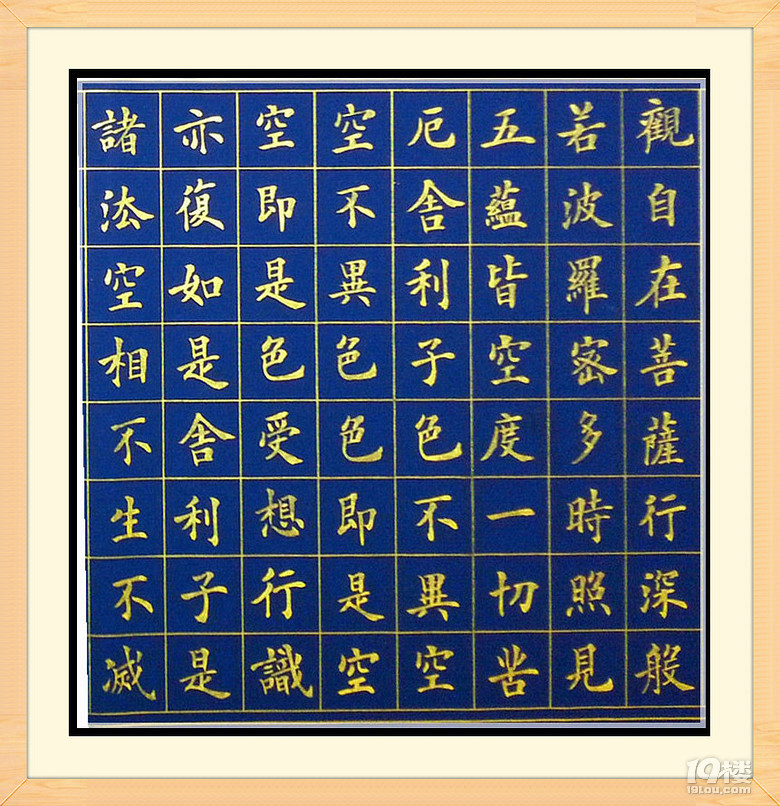 觀自在菩薩行深般
若波羅密多時照見
五蘊皆空度一切苦
厄舍利子色不異空
空不異色色即是空
空即是色受想行識
亦復如是舍利子是
諸法空相不生不滅
19楼
19lou.com